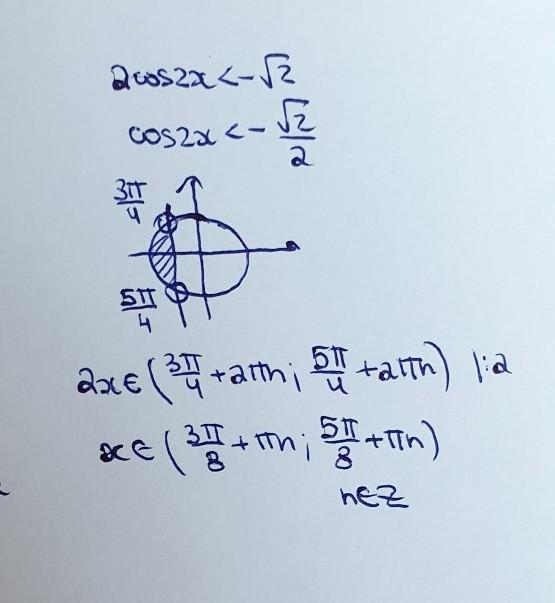 2cos2x<-√2
cos2x<-√2/2
3π/4
5π/4
2x∈(3π/4+2πn; 5π/4+2πn) |:2
x∈(3π/8+πn; 5π/8+πn)
n∈Z